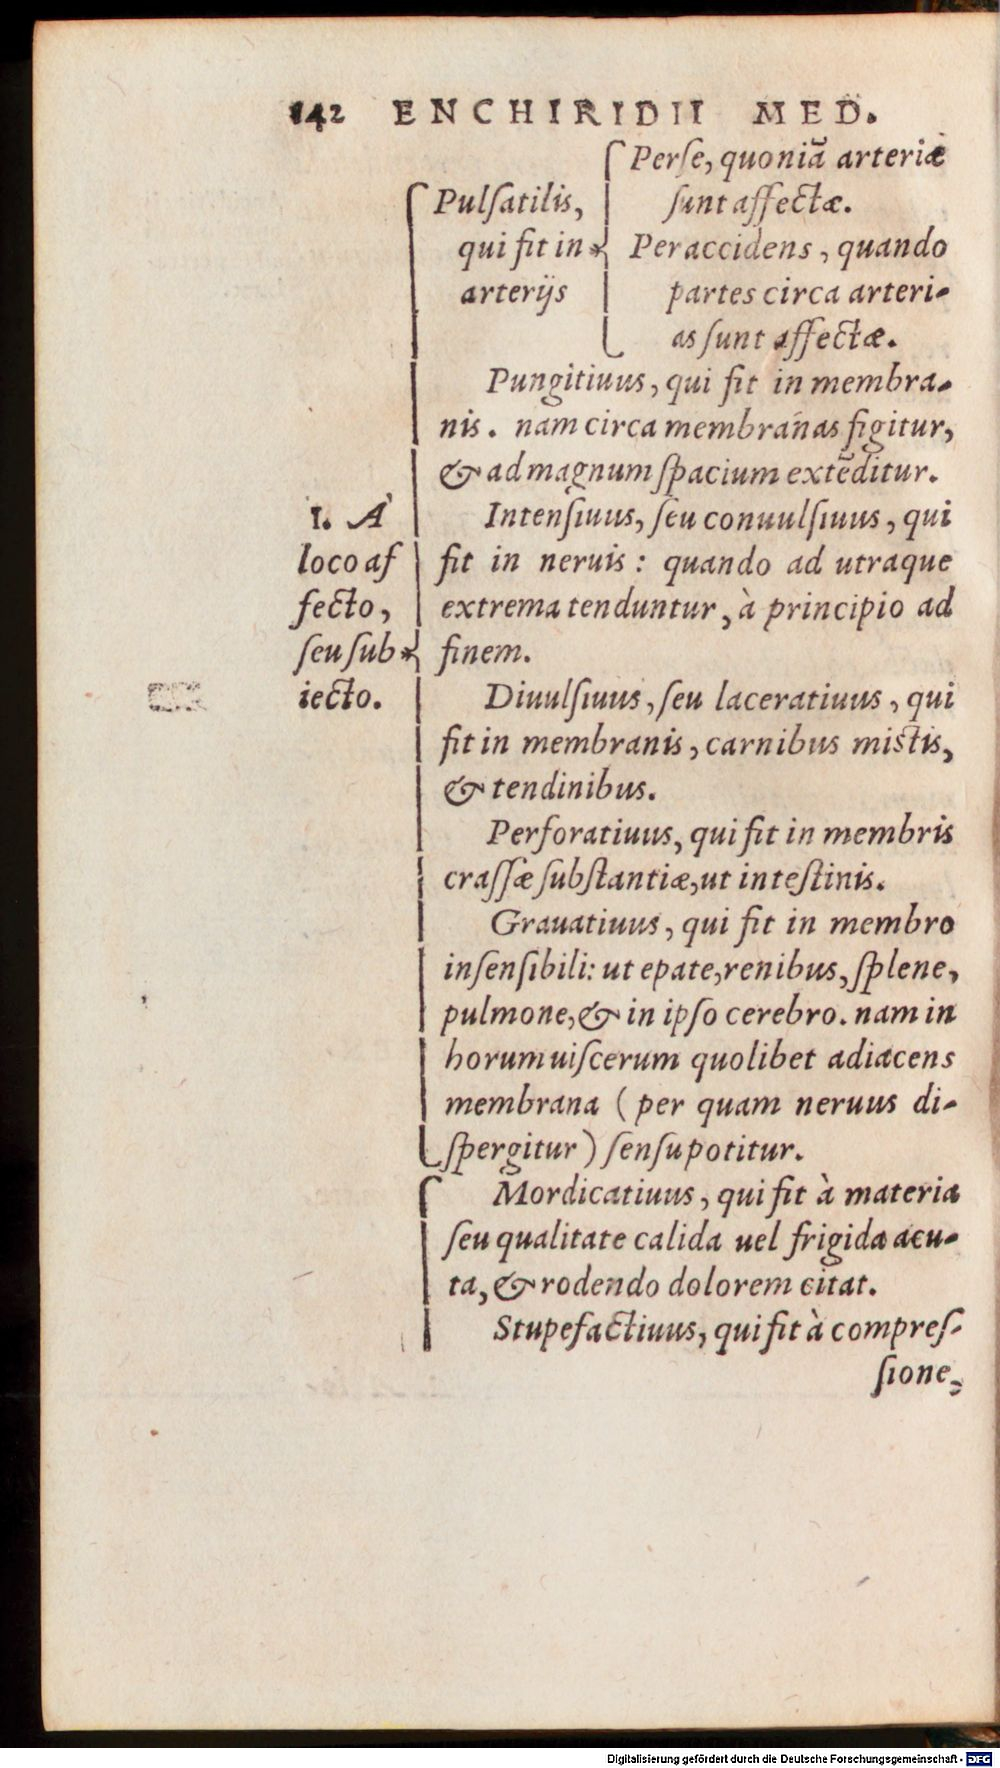 142 ENCHIRIDII MED.
1. À
loco af
fecto,
ſeu ſub
iecto.
Pulſatilis,
qui fit in
arterijs
Per ſe, quoniã arteriæ
ſunt affectæ.
Per accidens, quando
partes circa arteri-
as ſunt affectæ.
Pungitiuus, qui fit in membra-
nis. nam circa membranas figitur,
& ad magnum ſpacium extẽditur.
Intenſiuus, ſeu conuulſiuus, qui
fit in neruis: quando ad utraque
extrema tenduntur, à principio ad
finem.
Diuulſiuus, ſeu laceratiuus, qui
fit in membranis, carnibus mistis,
& tendinibus.
Perforatiuus, qui fit in membris
craſſæ ſubſtantiæ, ut inteſtinis.
Grauatiuus, qui fit in membro
inſenſibili: ut epate, renibus, ſplene,
pulmone, & in ipſo cerebro. nam in
horum uiſcerum quolibet adiacens
membrana (per quam neruus di-
ſpergitur) ſenſu potitur.
Mordicatiuus, qui fit à materia
ſeu qualitate calida uel frigida acu-
ta, & rodendo dolorem citat.
Stupefactiuus, qui fit à compreſ-
ſione,
Digitalisierung gefördert durch die Deutsche Forschungsgemeinschaft - DFG